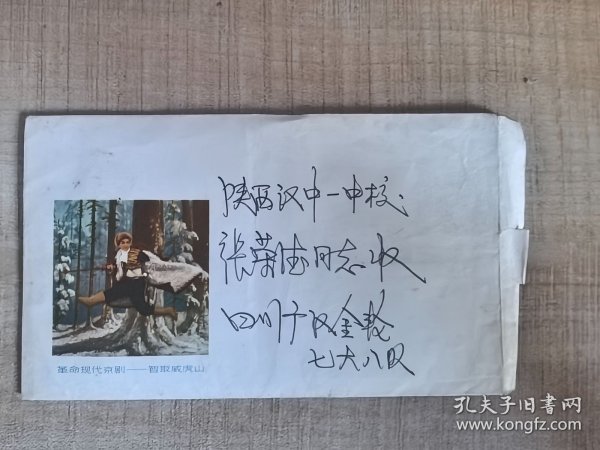 陕西汉中一中校
张荣德同志收
四川广汉金轮
七大八队
革命现代京剧——智取威虎山
孔夫子旧书网
www.kongfz.com